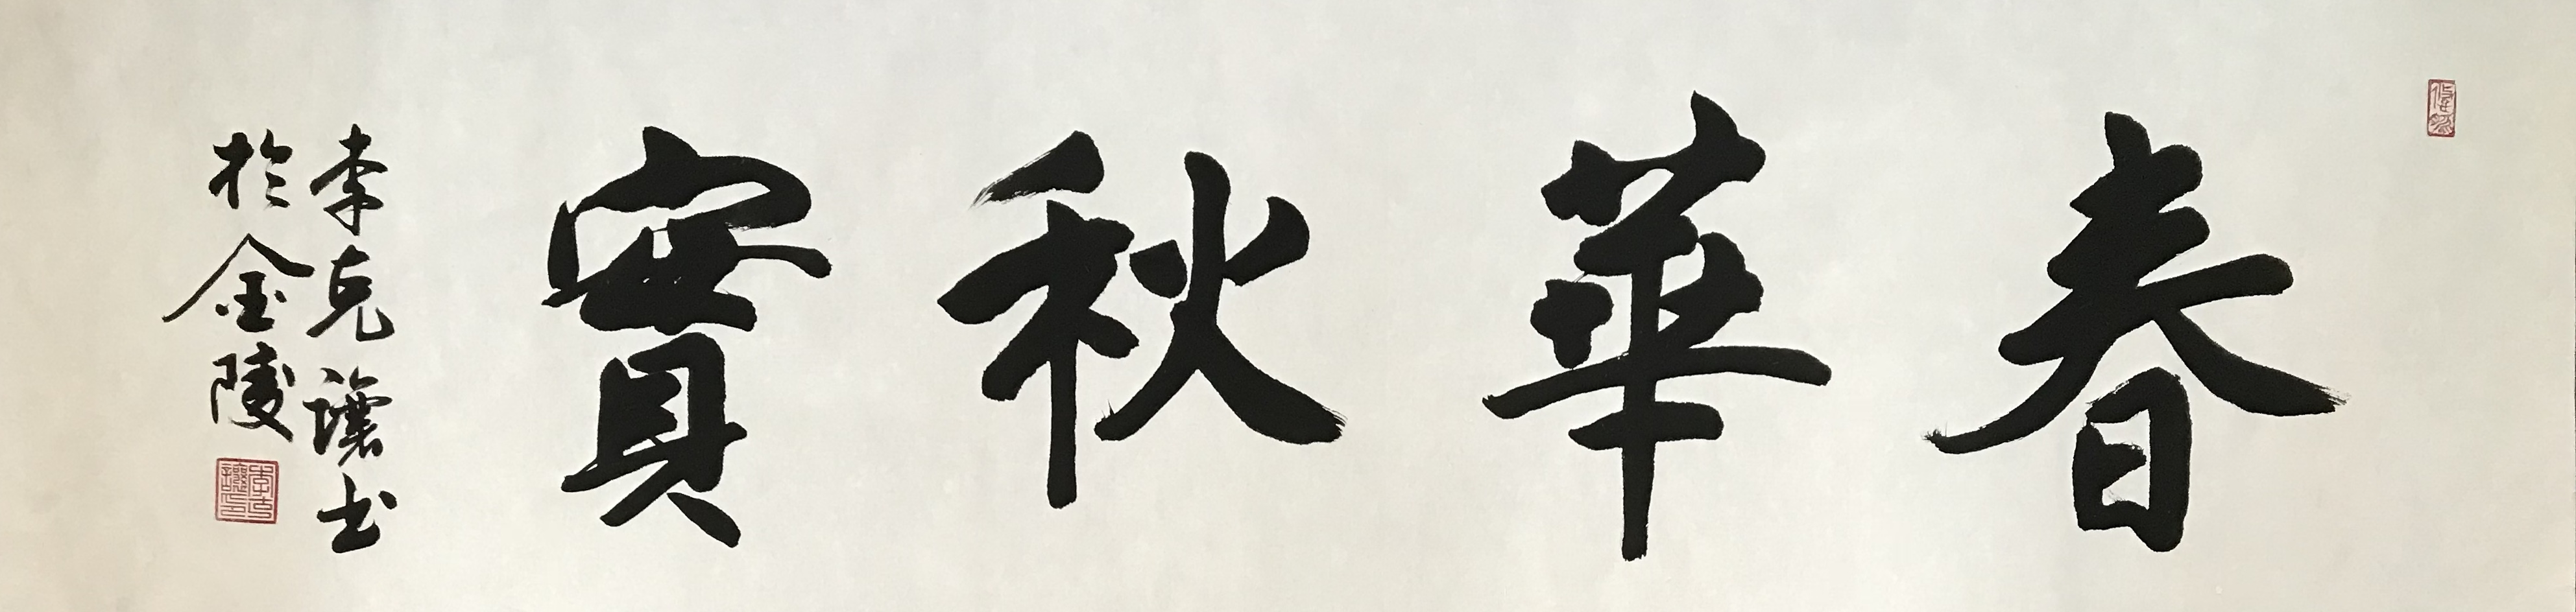 春華秋實
李克讓书
於金陵